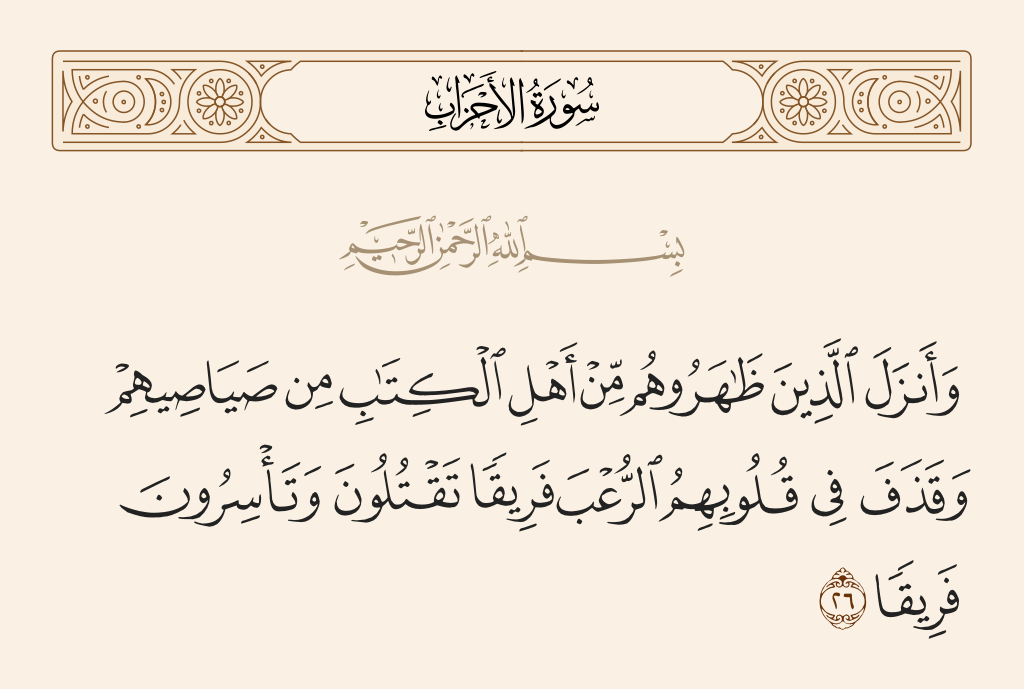 سُورَةُ الأَحْزَابِ
بِسْمِ ٱللَّهِ ٱلرَّحْمَٰنِ ٱلرَّحِيمِ
وَأَنزَلَ ٱلَّذِينَ ظَٰهَرُوهُم مِّنْ أَهْلِ ٱلْكِتَٰبِ مِن صَيَاصِيهِمْ
وَقَذَفَ فِى قُلُوبِهِمُ ٱلرُّعْبَ فَرِيقًا تَقْتُلُونَ وَتَأْسِرُونَ
فَرِيقًا ٢٦